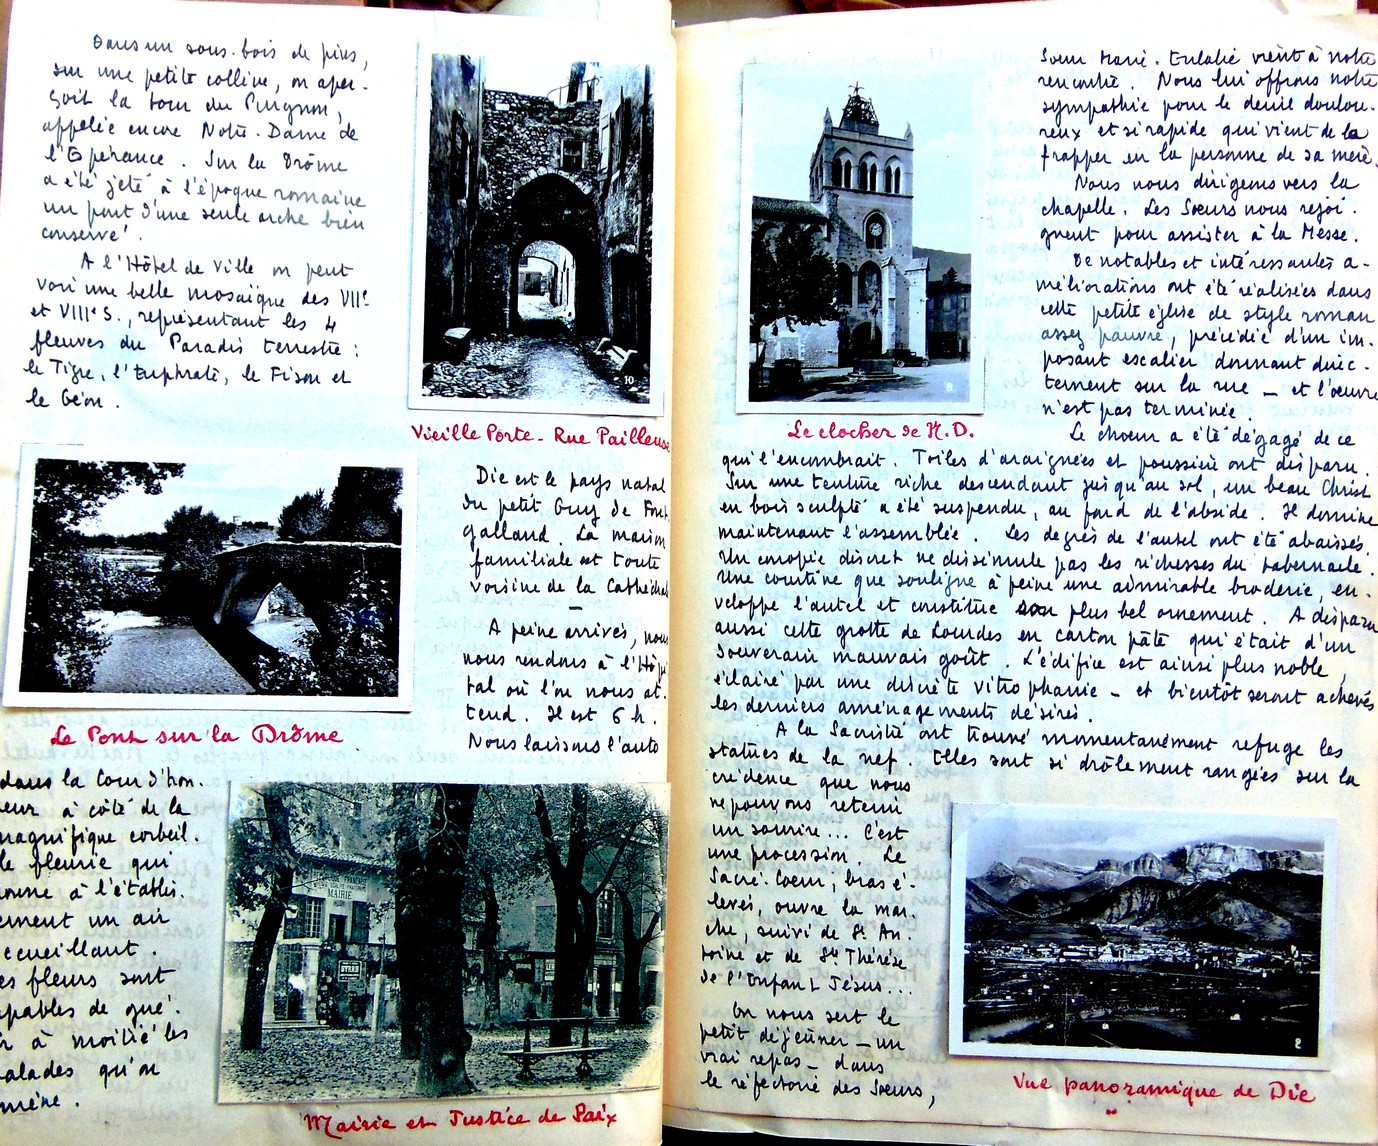 Dans un sous-bois de pins,
sur une petite colline, on aper-
çoit la tour du Purgnon,
appelée encore Notre-Dame de
l'Espérance. Sur la Drôme
a été jeté à l'époque romaine
un pont d'une seule arche bien
conservé.
A l'Hôtel de Ville on peut
voir une belle mosaïque des VIIe
et VIIIe S., représentant les 4
fleuves du Paradis terrestre :
le Tigre, l'Euphrate, le Fison et
le Géon.
10
Vieille Porte - Rue Pailleuse
9
Le Pont sur la Drôme
Die est le pays natal
du petit Guy de Font
galland. La maison
familiale est toute
voisine de la Cathédral
A peine arrivés, nous
nous rendons à l'Hôpi
tal où l'on nous at-
tend. Il est 6 h.
Nous laissons l'auto
dans la Cour d'hon-
neur à côté de la
magnifique corbeil-
le fleurie qui
donne à l'établis-
sement un air
accueillant
es fleurs sont
apables de gué-
r à moitié les
malades qu'on
mène.
MAIRIE
BYRRH
Mairie et Justice de Paix
8
Le clocher de N.D.
Sœur Marie-Eulalie vient à notre
rencontre. Nous lui offrons notre
sympathie pour le deuil doulou-
reux et si rapide qui vient de la
frapper en la personne de sa mère.
Nous nous dirigeons vers la
chapelle. Les Sœurs nous rejoi-
gnent pour assister à la Messe.
De notables et intéressantes a-
méliorations ont été réalisées dans
cette petite église de style roman
assez pauvre, précédée d'un im-
posant escalier donnant direc-
tement sur la rue — et l'œuvre
n'est pas terminée.
Le chœur a été dégagé de ce
qui l'encombrait. Toiles d'araignées et poussière ont disparu.
Sur une tenture riche descendant jusqu'au sol, un beau Christ
en bois sculpté a été suspendu, au fond de l'abside. Il domine
maintenant l'assemblée. Les degrés de l'autel ont été abaissés.
Un conopée discret ne dissimule pas les richesses du tabernacle.
Une courtine que souligne à peine une admirable broderie, en-
veloppe l'autel et constitue son plus bel ornement. A disparu
aussi cette grotte de Lourdes en carton pâte qui était d'un
souverain mauvais goût. L'édifice est ainsi plus noble,
éclairé par une discrète vitrophanie — et bientôt seront achevés
les derniers aménagements désirés.
A la Sacristie ont trouvé momentanément refuge les
statues de la nef. Elles sont si drôlement rangées sur la
crédence que nous
ne pouvons retenir
un sourire... C'est
une procession. Le
Sacré-Cœur, bras é-
levés, ouvre la mar-
che, suivi de St An-
toine et de Ste Thérèse
de l'Enfant Jésus...
On nous sert le
petit déjeûner — un
vrai repas — dans
le réfectoire des Sœurs,
2
Vue panoramique de Die